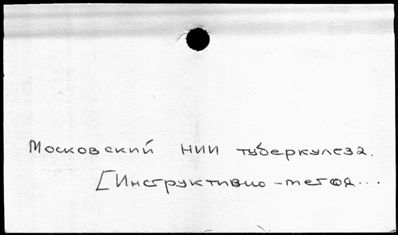 Московский НИИ туберкулеза.
[Инструктивно-метод...